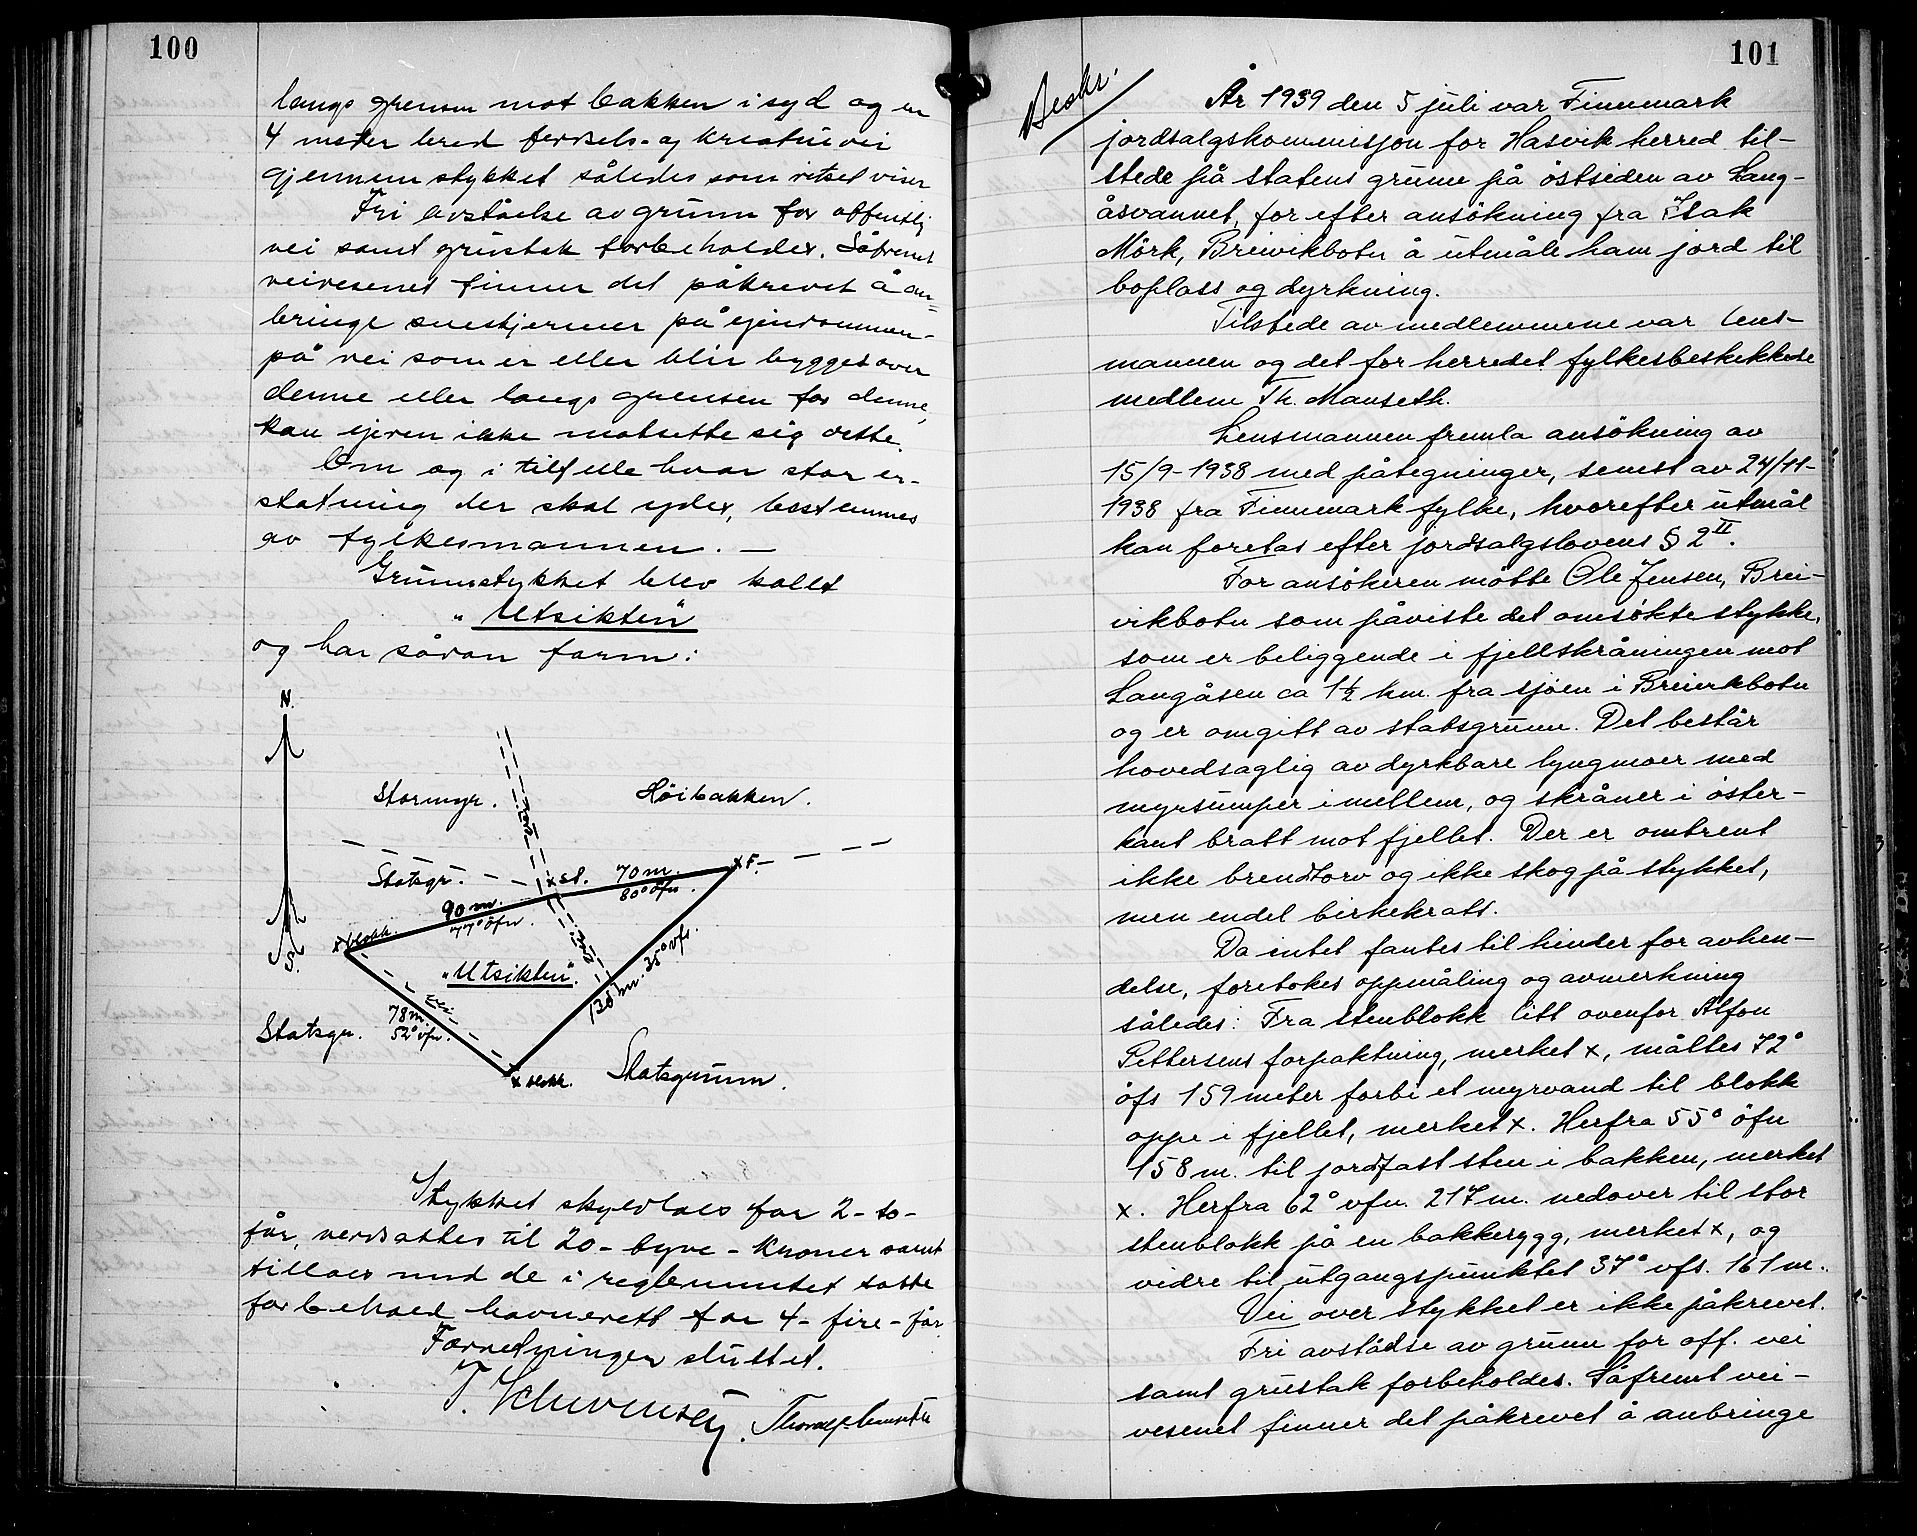 100
langs grensen mot bakken i syd og en
4 meter bred ferdsels- og kreaturvei
gjennem stykket således som ritset viser
Fri avståelse av grunn for offentlig
vei samt grustak forbeholdes. Såfremt
veivesenet finner det påkrevet å an-
bringe sneskjermer på eiendommen
på vei som er eller blir bygget over
denne eller langs grensen for denne,
kan ejeren ikke motsette sig dette.
Om og i tilfelle hvor stor er-
statning der skal ydes, bestemmes
av fylkesmannen. —
Grunnstykket blev kallt
"Utsikten"
og har sådan form:
N.
Stormyr.
Höibakken.
vei
Statsgr.
x st.
70 m.
80° öfn.
x F.
90 m.
77° öfn
x blokk.
S.
"Utsikten".
vei
138 m. 35° vfs.
vei
78 m
52° vfn.
Statsgr.
x blokk.
Statsgrunn.
Stykket skyldlaes for 2 - to -
før, verdsattes til 20 - tyve - kroner samt
tillaes med de i reglementet satte
forbehold havnerett for 4 - fire - før.
Forretningen sluttet.
101
Beskr.
År 1939 den 5 juli var Finnmark
jordsalgskommisjon for Hasvik herred til-
stede på statens grunn på östsiden av Lang-
åsvannet, for efter ansökning fra Isak
Mörk, Breivikbotn å utmåle ham jord til
boplass og dyrkning.
Tilstede av medlemmene var lens-
mannen og det for herredet fylkesbeskikkede
medlem Th. Manseth.
Lensmannen fremla ansökning av
15/9-1938 med påtegninger, senest av 24/11-
1938 fra Finnmark fylke, hvorefter utmål
kan foretas efter jordsalgslovens § 2 II.
For ansökeren mötte Ole Jensen, Brei-
vikbotn som påviste det omsökte stykke,
som er beliggende i fjellskråningen mot
Langåsen ca 1½ km. fra sjöen i Breivikbotn
og er omgitt av statsgrunn. Det består
hovedsaglig av dyrkbare lyngmoer med
myrsumper imellem, og skråner i öster-
kant bratt mot fjellet. Der er omtrent
ikke brendtorv og ikke skog på stykket,
men endel birkekratt.
Da intet fantes til hinder for avhen-
delse, foretokes oppmåling og avmerkning
således: Fra stenblokk litt ovenfor Alfon
Pettersens forpaktning, merket x, måltes 72°
öfs 159 meter forbi et myrvand til blokk
oppe i fjellet, merket x. Herfra 55° öfn
158 m. til jordfast sten i bakken, merket
x. Herfra 62° vfn. 217 m. nedover til stor
stenblokk på en bakkerygg, merket x, og
vidre til utgangspunktet 37° vfs. 161 m.
Vei over stykket er ikke påkrevet.
Fri avståelse av grunn for off. vei
samt grustak forbeholdes. Såfremt vei-
vesenet finner det påkrevet å anbringe